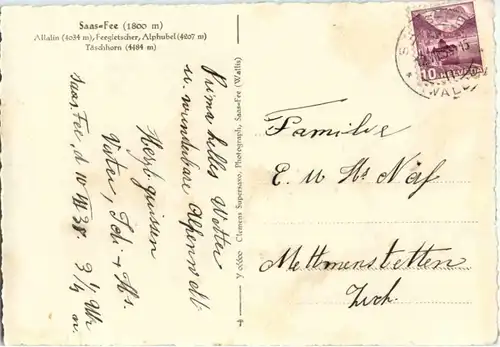 Saas=Fee (1800 m)
Allalin (4034 m), Feegletscher, Alphubel (4207 m)
Täschhorn (4494 m)
Prima helles Wetter
u. wunderbare Alpenwelt
Herzl. grüssen
Vater, Tösi + Hs.
Saas-Fee, d 10 VII 38. 3 1/4 Uhr n.
Clemens Supersaxo, Photograph, Saas=Fee (Wallis)
10
HELVETIA
Familie
E. u Hs Näf
Mettmenstetten
Zürch.